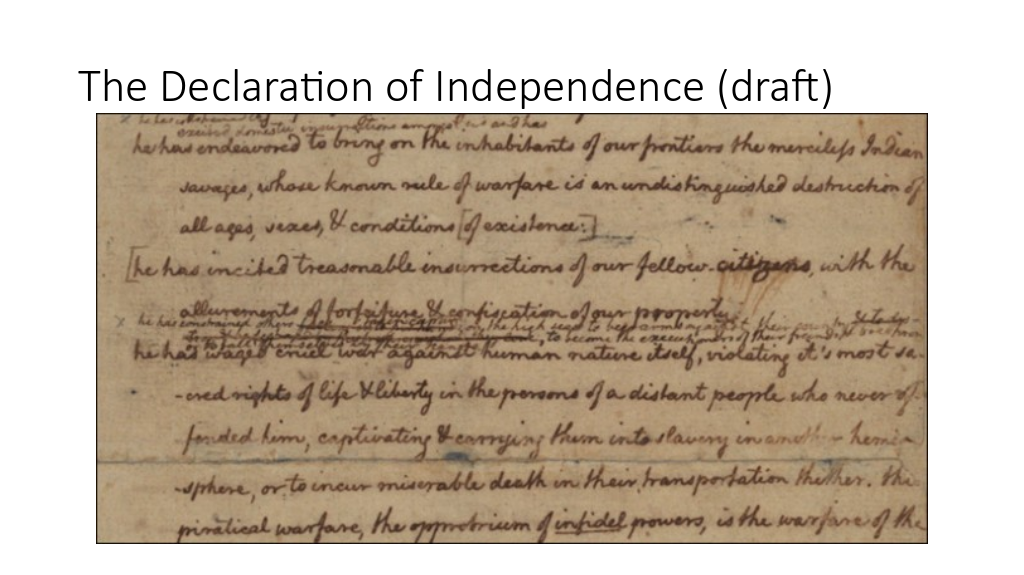 The Declaration of Independence (draft)
he has
excited domestic insurrections amongst us and has
he has endeavored to bring on the inhabitants of our frontiers the merciless Indian
savages, whose known rule of warfare is an undistinguished destruction of
all ages, sexes, & conditions [of existence.]
[he has incited treasonable insurrections of our fellow-citizens, with the
allurements of forfeiture & confiscation of our property.
he has constrained others on the high seas to bear arms against their country
to become the executioners of their
he has waged cruel war against human nature itself, violating it's most sa-
-cred rights of life & liberty in the persons of a distant people who never of-
fended him, captivating & carrying them into slavery in another hemi-
-sphere, or to incur miserable death in their transportation thither. this
piratical warfare, the opprobrium of infidel powers, is the warfare of the